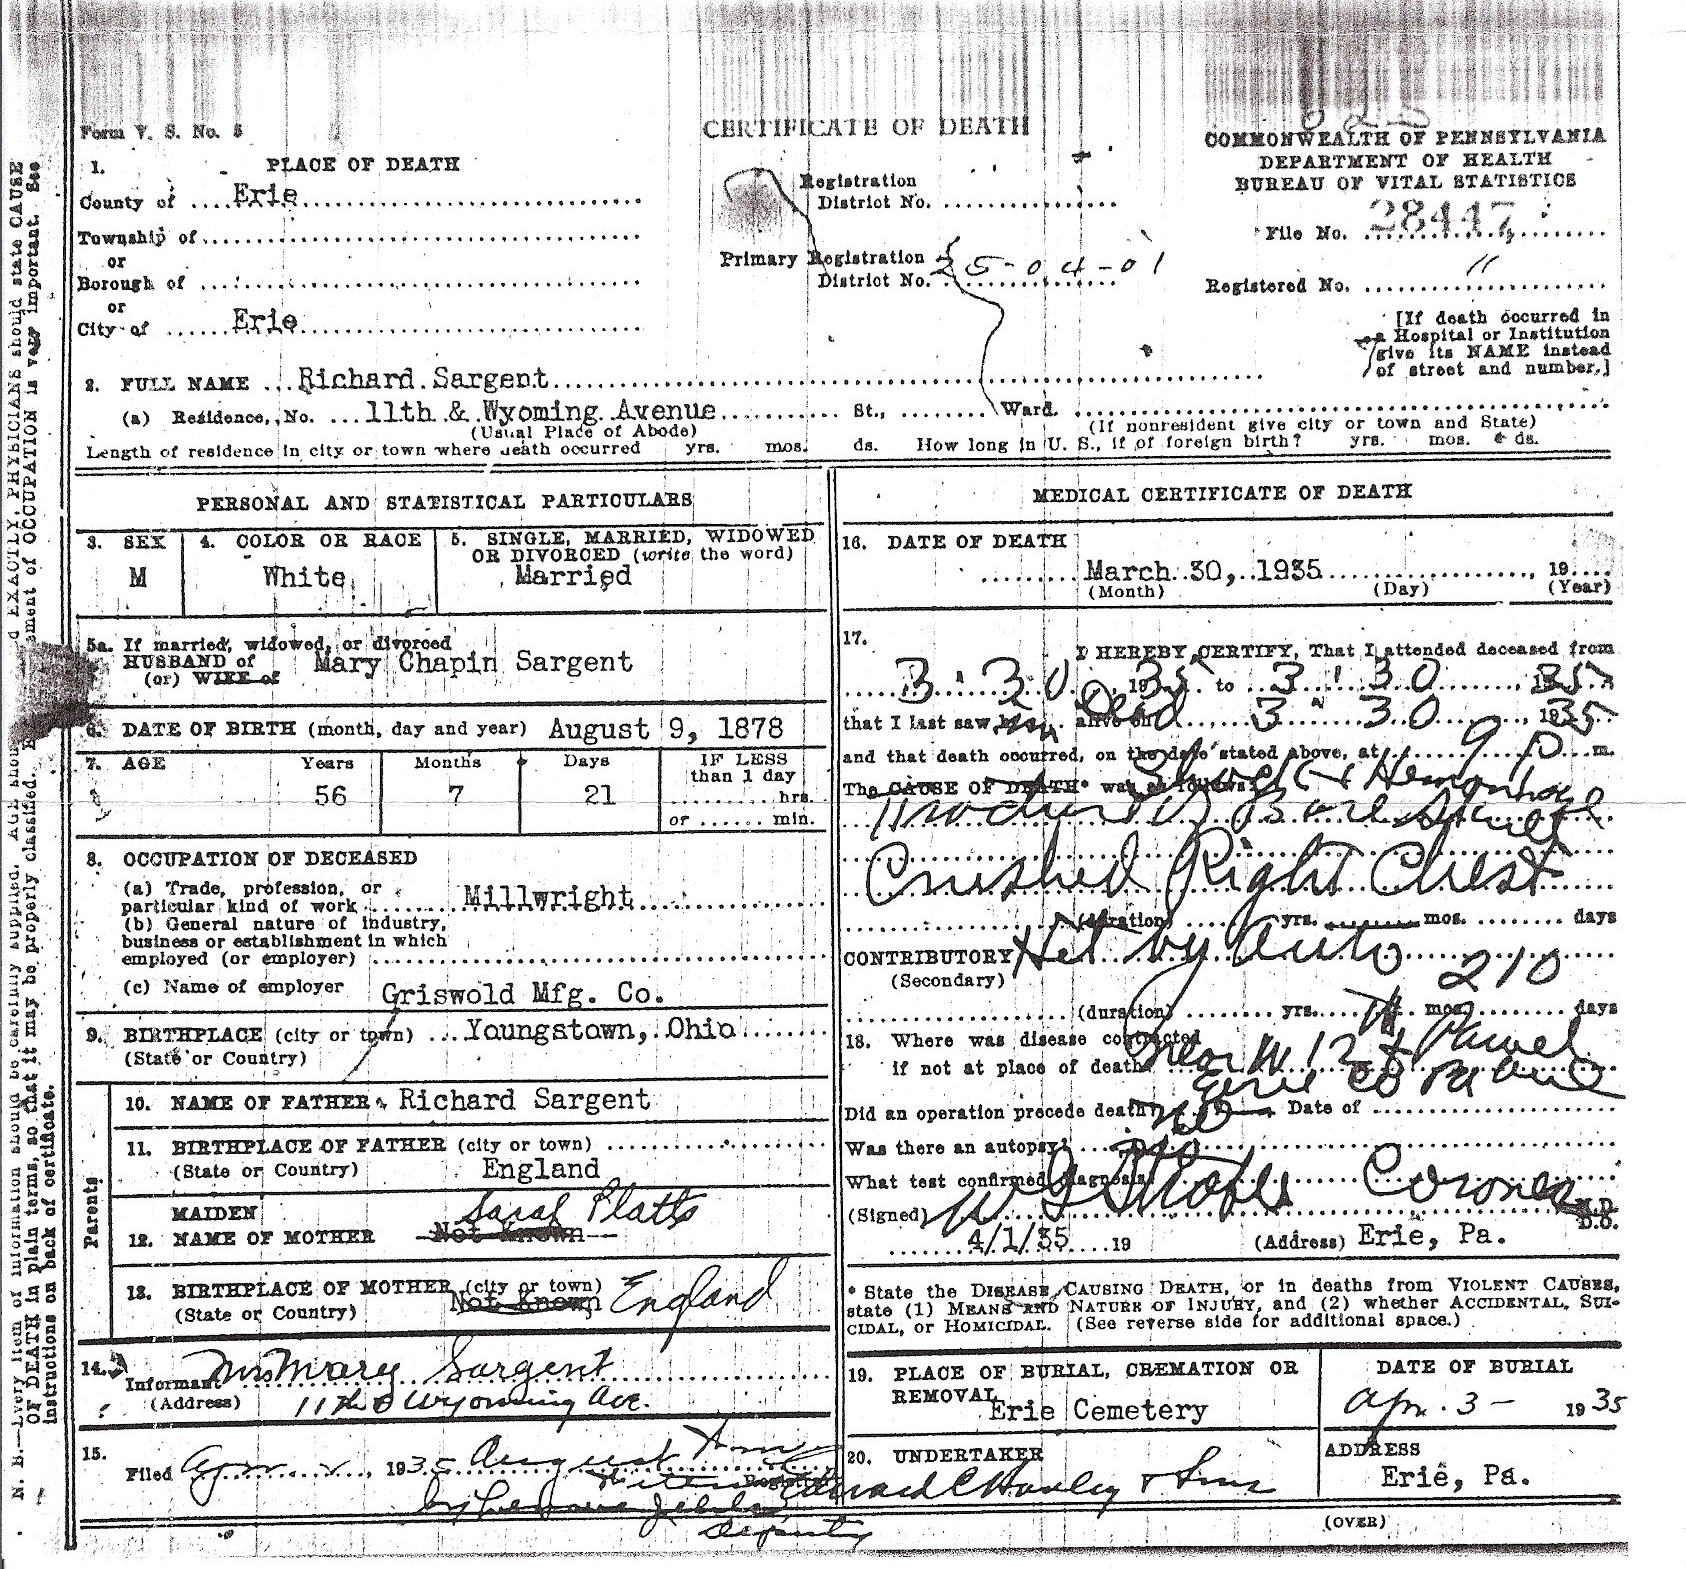 Form V. S. No. 5
CERTIFICATE OF DEATH
COMMONWEALTH OF PENNSYLVANIA
DEPARTMENT OF HEALTH
BUREAU OF VITAL STATISTICS
File No. 28447
Registered No. 11
[If death occurred in
a Hospital or Institution
give its NAME instead
of street and number.]
1. PLACE OF DEATH
County of Erie
Township of
or
Borough of
or
City of Erie
Registration
District No.
Primary Registration
District No. 25-04-01
2. FULL NAME Richard Sargent
(a) Residence, No. 11th & Wyoming Avenue St., Ward.
(Usual Place of Abode) (If nonresident give city or town and State)
Length of residence in city or town where death occurred yrs. mos. ds. How long in U. S., if of foreign birth? yrs. mos. ds.
PERSONAL AND STATISTICAL PARTICULARS
3. SEX
M
4. COLOR OR RACE
White
5. SINGLE, MARRIED, WIDOWED
OR DIVORCED (write the word)
Married
5a. If married, widowed, or divorced
HUSBAND of Mary Chapin Sargent
(or) WIFE of
6. DATE OF BIRTH (month, day and year) August 9, 1878
7. AGE Years Months Days IF LESS
than 1 day
56 7 21 hrs.
or min.
8. OCCUPATION OF DECEASED
(a) Trade, profession, or
particular kind of work Millwright
(b) General nature of industry,
business or establishment in which
employed (or employer)
(c) Name of employer Griswold Mfg. Co.
9. BIRTHPLACE (city or town) Youngstown, Ohio
(State or Country)
Parents
10. NAME OF FATHER Richard Sargent
11. BIRTHPLACE OF FATHER (city or town)
(State or Country) England
MAIDEN Sarah Platts
12. NAME OF MOTHER Not Known
13. BIRTHPLACE OF MOTHER (city or town)
(State or Country) Not Known England
14. Informant Mrs Mary Sargent
(Address) 11th & Wyoming Ave.
15. Filed Apr. 1935 August
Registrar
Deputy
MEDICAL CERTIFICATE OF DEATH
16. DATE OF DEATH
March 30, 1935 19
(Month) (Day) (Year)
17. I HEREBY CERTIFY, That I attended deceased from
3 30 1935 to 3 30 1935
that I last saw him alive on Dead 3 30 1935
and that death occurred, on the date stated above, at 9 P m.
The CAUSE OF DEATH* was as follows: Shock & Hemorrhage
Skull
Crushed Right Chest
(duration) yrs. mos. days
CONTRIBUTORY Hit by Auto
(Secondary) 210
(duration) yrs. mos. days
18. Where was disease contracted
if not at place of death? Near W 12
Erie Co
Did an operation precede death? No Date of
Was there an autopsy? No
What test confirmed diagnosis?
(Signed) Coroner M.D.
D.O.
4/1/35 19 (Address) Erie, Pa.
* State the DISEASE CAUSING DEATH, or in deaths from VIOLENT CAUSES,
state (1) MEANS AND NATURE OF INJURY, and (2) whether ACCIDENTAL, SUI-
CIDAL, or HOMICIDAL. (See reverse side for additional space.)
19. PLACE OF BURIAL, CREMATION OR
REMOVAL
Erie Cemetery
DATE OF BURIAL
Apr. 3 - 1935
20. UNDERTAKER
& Sons
ADDRESS
Erie, Pa.
(OVER)
OF DEATH in plain terms, so that it may be properly classified.
instructions on back of certificate.